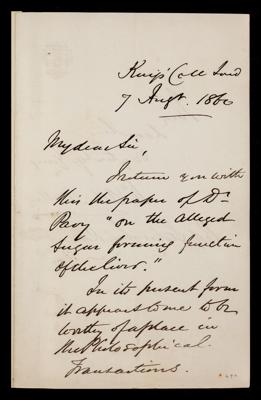 King's Coll Lond
7 Augt. 1860
My dear Sir,
I return you with
this the paper of Dr
Pavy "on the alleged
sugar forming function
of the liver."
In its present form
it appears to me to be
worthy of a place in
the Philosophical
Transactions.